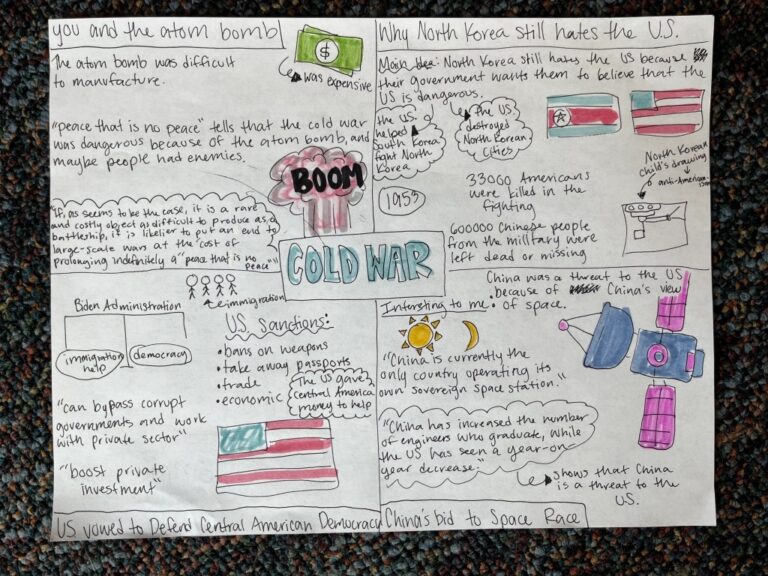 you and the atom bomb
The atom bomb was difficult
to manufacture.
$
was expensive
"peace that is no peace" tells that the cold war
was dangerous because of the atom bomb, and
maybe people had enemies.
"If, as seems to be the case, it is a rare
and costly object as difficult to produce as a
battleship, it is likelier to put an end to
large-scale wars at the cost of
prolonging indefinitely a "peace that is no
peace""
BOOM
COLD WAR
Why North Korea still hates the U.S.
Main Idea: North Korea still hates the US because
their government wants them to believe that the
US is dangerous.
the U.S.
helped
South Korea
fight North
Korea
the U.S.
destroyed
North Korean
Cities
1953
33000 Americans
were killed in the
fighting
600000 Chinese people
from the military were
left dead or missing
North Korean
child's drawing
anti-American-
ism
Biden Administration
immigration
help
democracy
immigration
U.S. Sanctions:
• bans on weapons
• take away passports
• trade
• economic
The US gave
Central America
money to help
"can bypass corrupt
governments and work
with private sector"
"boost private
investment"
US vowed to Defend Central American Democracy
China was a threat to the US
because of China's view
of space.
Interesting to me:
"China is currently the
only country operating its
own sovereign space station."
"China has increased the number
of engineers who graduate, while
the US has seen a year-on-
year decrease."
shows that China
is a threat to the
U.S.
China's bid to Space Race